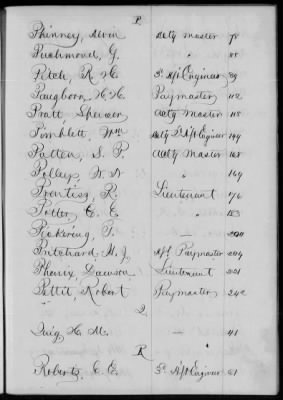 P.
Phinney, Alvin Actg Master 78
Pushmond, G. " 88
Fitch, R H. 3d Ast Engineer 89
Pangborn, H. H. Paymaster 112
Pratt Spencer Actg Master 118
Pimblett, Wm Actg 3 Ast Engineer 144
Patten, S. P. Actg Master 168
Polleys, W. N " 169
Prentiss, R. Lieutenant 176
Potter, E. E. " 183
Pickering, T. — 200
Pritchard M. J, Ast Paymaster 204
Phenix, Dawson Lieutenant 221
Pettit, Robert Paymaster 242
Q.
Quig H. M. — 41
R
Roberts, E. E. 3d Ast Engineer 61